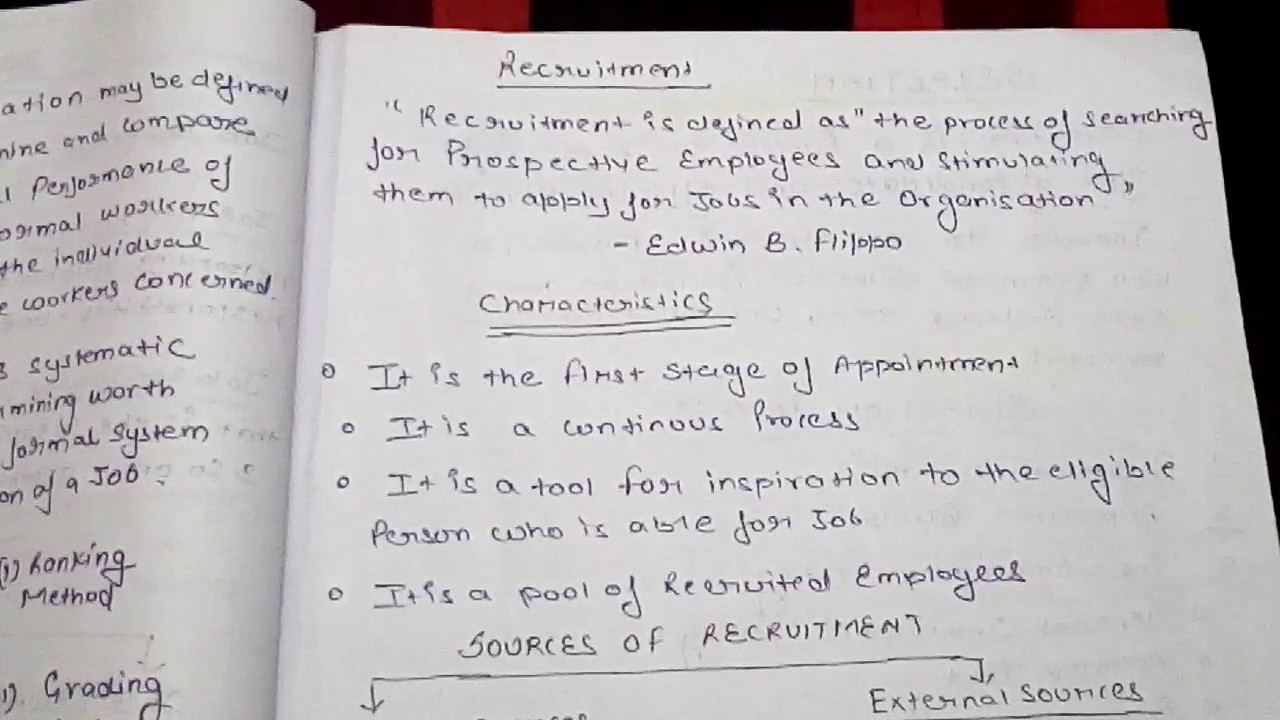 ation may be defined
mine and compare
Performance of
normal workers
the individual
e workers concerned.
systematic
mining worth
formal system
on of a Job.
(i) Ranking
Method
Grading
Recruitment
"Recruitment is defined as" the process of searching
for Prospective Employees and stimulating
them to apply for Jobs in the Organisation"
- Edwin B. Flippo
Characteristics
o It is the first stage of Appointment
o It is a continous Process
o It is a tool for inspiration to the eligible
Person who is able for Job
o It is a pool of Recruited Employees
SOURCES OF RECRUITMENT
External Sources